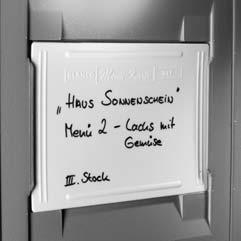 „HAUS SONNENSCHEIN"
Menü 2 – Lachs mit
Gemüse
III. Stock